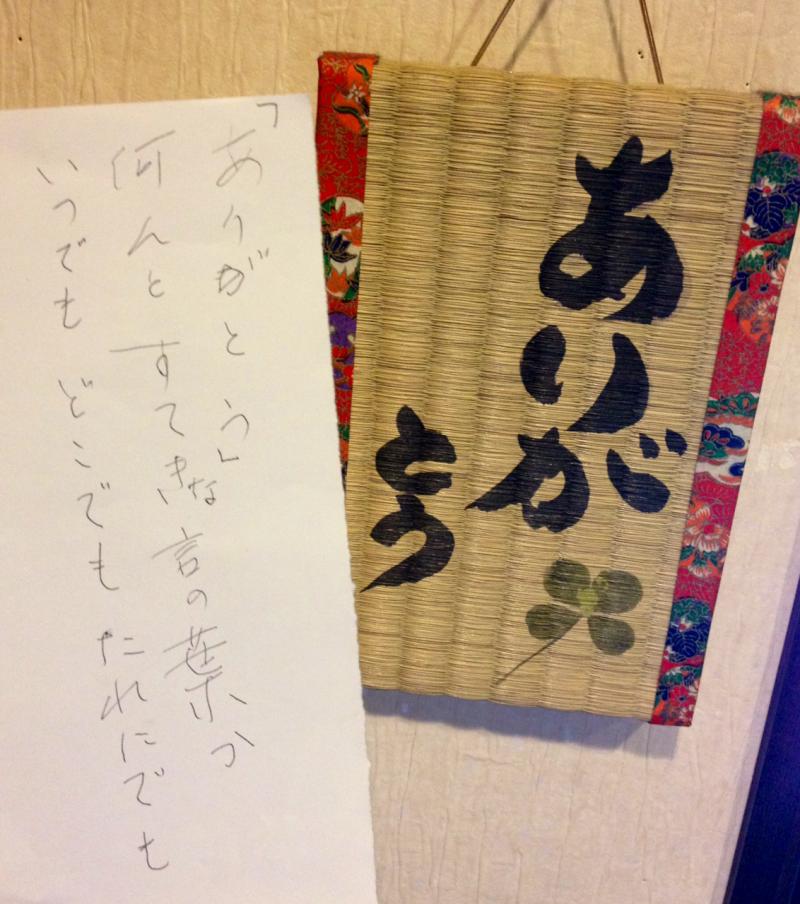 ありが
とう
「ありがとう」
何んと すてきな 言の葉か
いつでも どこでも たれにでも